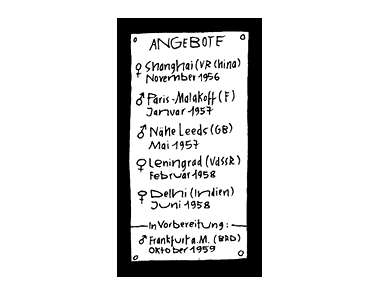 ANGEBOTE
♀ Shanghai (VR China)
November 1956
♂ Paris-Malakoff (F)
Januar 1957
♂ Nähe Leeds (GB)
Mai 1957
♀ Leningrad (VdSSR)
Februar 1958
♀ Delhi (Indien)
Juni 1958
In Vorbereitung:
♂ Frankfurt a.M. (BRD)
Oktober 1959